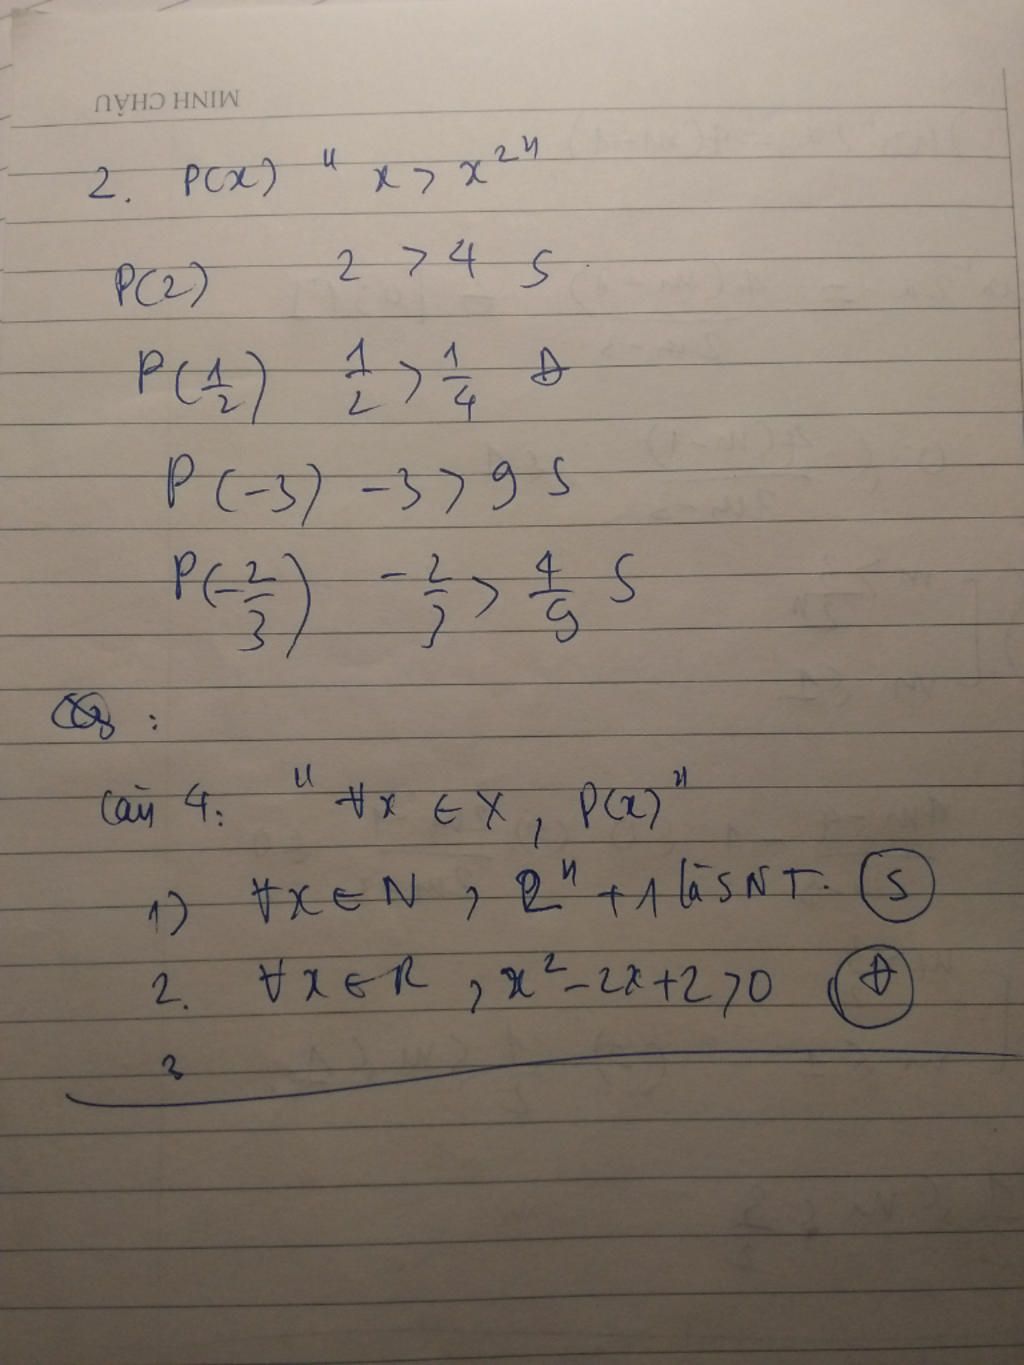 MINH CHÂU
2. P(x) " x > x²"
P(2) 2 > 4 S
P(1/2) 1/2 > 1/4 Đ
P(-3) -3 > 9 S
P(-2/3) -2/3 > 4/9 S
:
Câu 4: " ∀x ∈ X, P(x)"
1) ∀x ∈ N, 2ⁿ + 1 là SNT. S
2. ∀x ∈ R, x² - 2x + 2 > 0 Đ
3